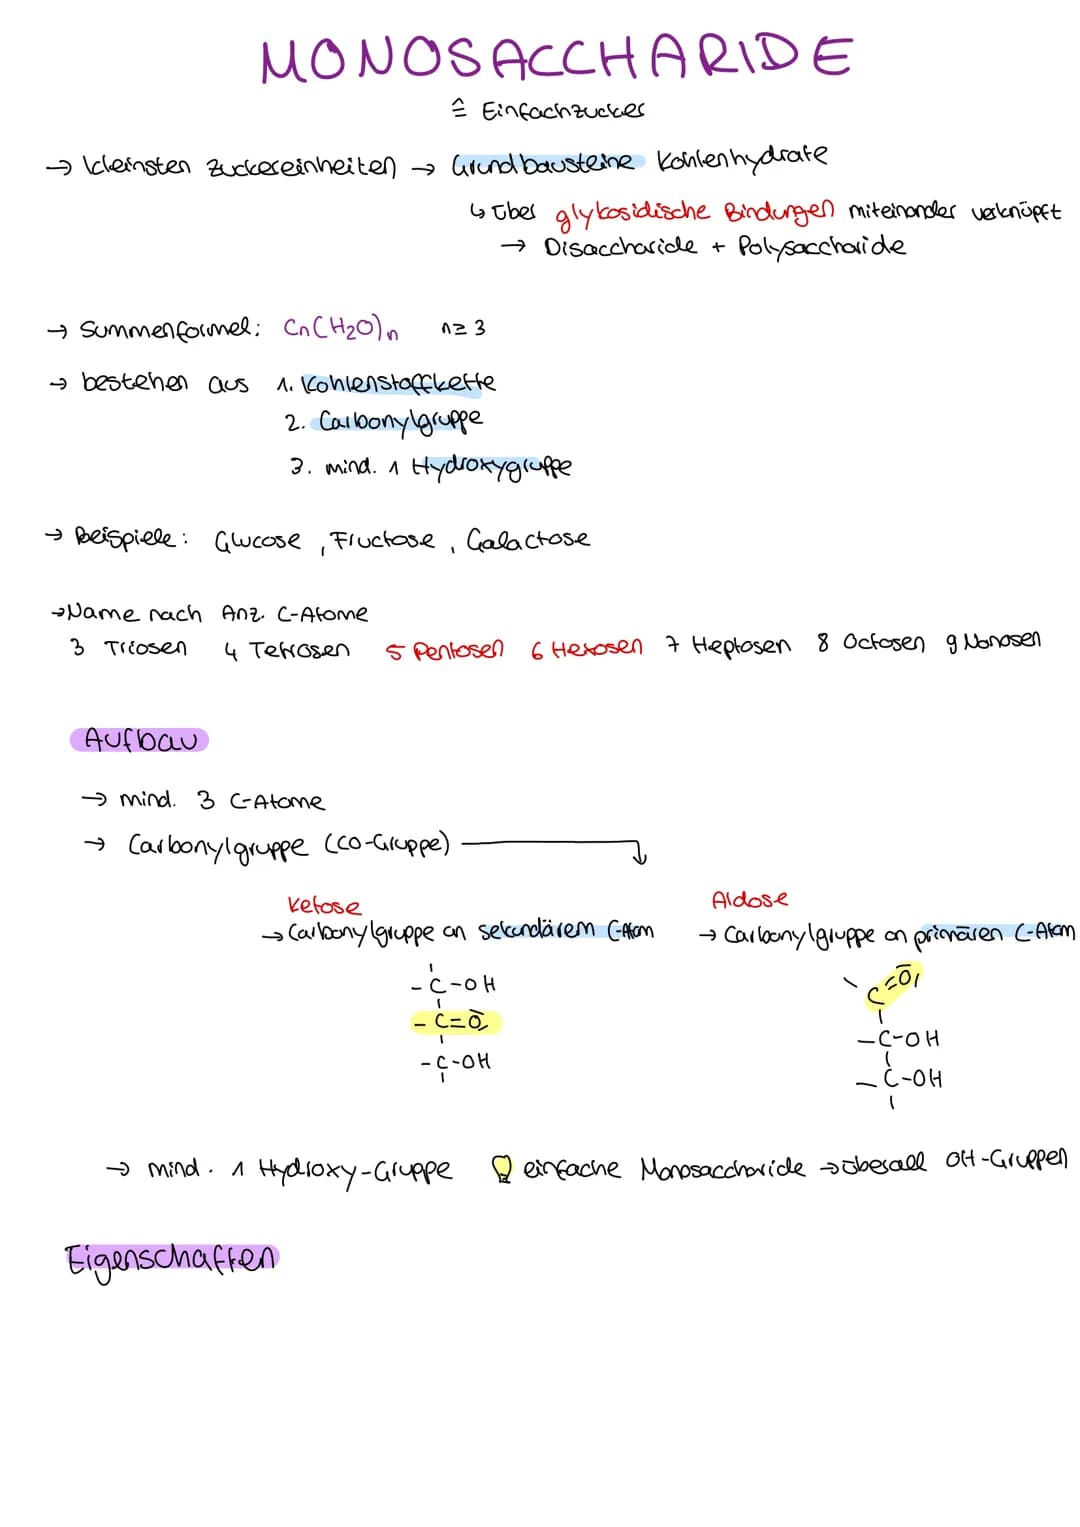 MONOSACCHARIDE
≙ Einfachzucker
→ kleinsten Zuckereinheiten → Grundbausteine Kohlenhydrate
↳ über glykosidische Bindungen miteinander verknüpft
→ Disaccharide + Polysaccharide
→ Summenformel: Cn(H2O)n n≥3
→ bestehen aus 1. Kohlenstoffkette
2. Carbonylgruppe
3. mind. 1 Hydroxygruppe
→ Beispiele: Glucose, Fructose, Galactose
→ Name nach Anz. C-Atome
3 Triosen 4 Tetrosen 5 Pentosen 6 Hexosen 7 Heptosen 8 Octosen 9 Nonosen
Aufbau
→ mind. 3 C-Atome
→ Carbonylgruppe (CO-Gruppe)
Ketose Aldose
→ Carbonylgruppe an sekundärem C-Atom → Carbonylgruppe an primären C-Atom
-C-OH C=O
-C=O -C-OH
-C-OH -C-OH
→ mind. 1 Hydroxy-Gruppe einfache Monosaccharide → überall OH-Gruppen
Eigenschaften